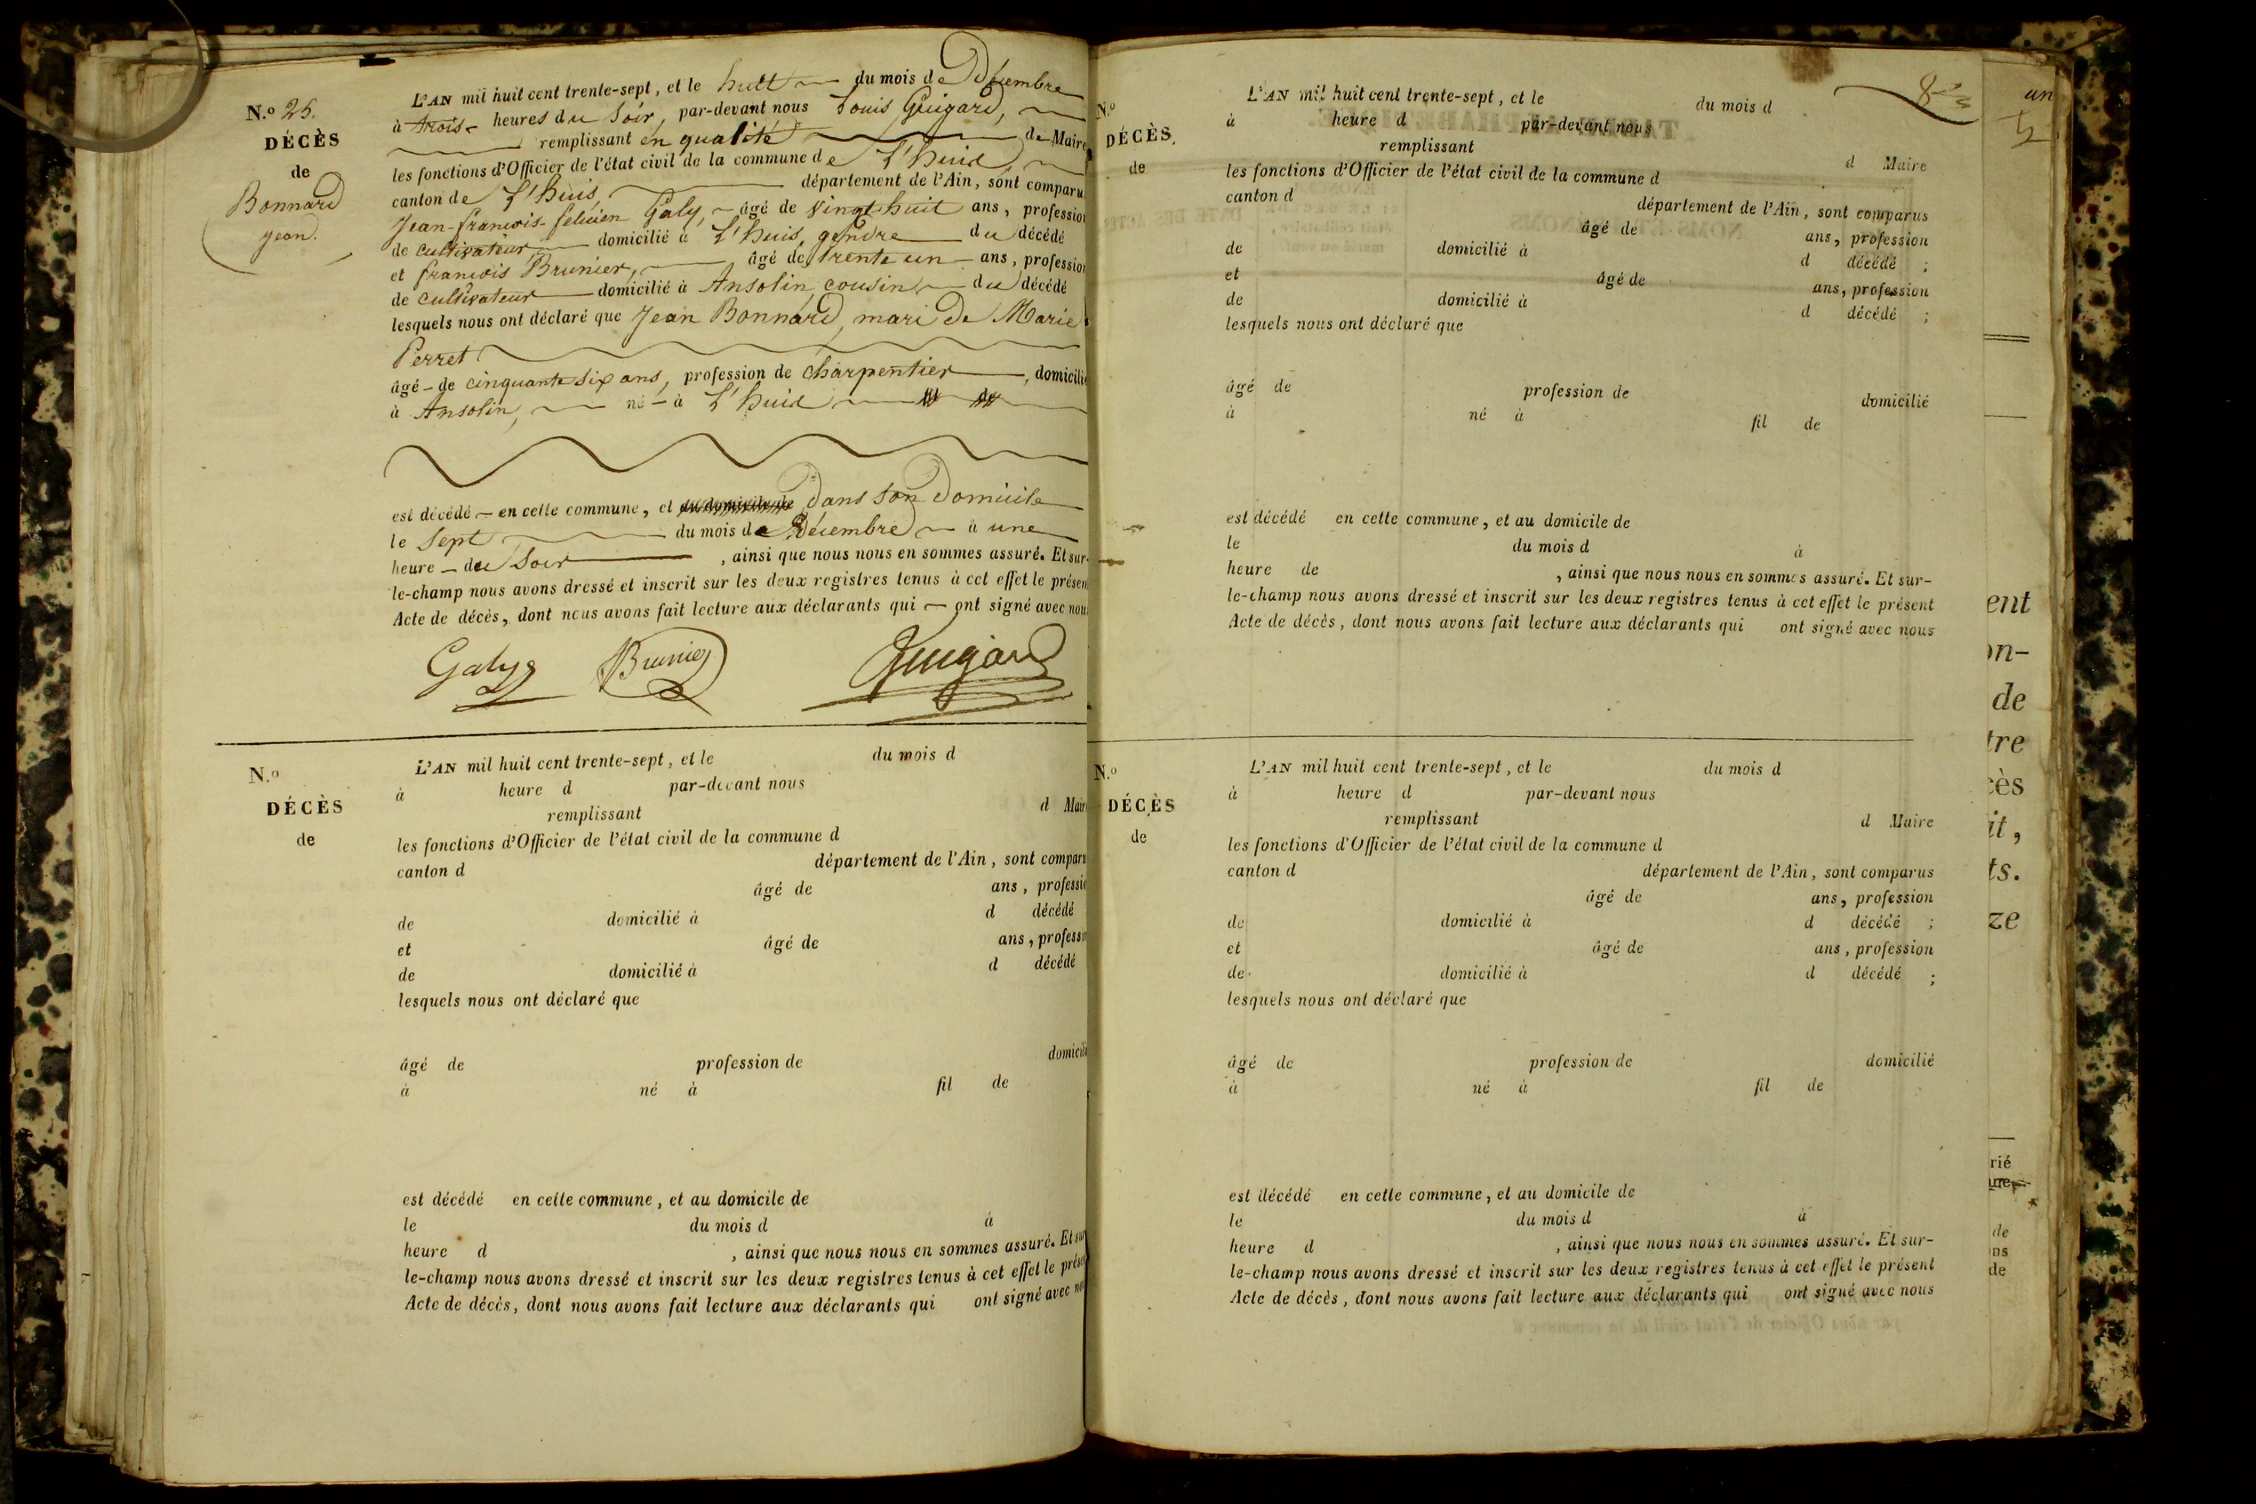 N.º 25.
DÉCÈS
de
Bonnard
Jean.
L'AN mil huit cent trente-sept, et le huit du mois de Décembre
à trois heures du Soir, par-devant nous Louis Guigard,
remplissant en qualité de Maire
les fonctions d'Officier de l'état civil de la commune de L'huis,
canton de L'huis, département de l'Ain, sont comparu
Jean-françois-félicien Galy, âgé de vingt huit ans, profession
de cultivateur domicilié à L'huis, gendre du décédé
et françois Brunier, âgé de trente un ans, profession
de cultivateur domicilié à Ansolin cousin du décédé
lesquels nous ont déclaré que Jean Bonnard, mari de Marie
Perret
âgé de cinquante six ans, profession de charpentier, domicilié
à Ansolin, né à L'huis
est décédé en cette commune, et au domicile de dans son Domicile
le Sept du mois de Décembre à une
heure du Soir, ainsi que nous nous en sommes assuré. Et sur-
le-champ nous avons dressé et inscrit sur les deux registres tenus à cet effet le présen
Acte de décès, dont nous avons fait lecture aux déclarants qui ont signé avec nou
Galy Brunier Guigard
N.º
DÉCÈS
de
L'AN mil huit cent trente-sept, et le du mois d
à heure d par-devant nous
remplissant d Maire
les fonctions d'Officier de l'état civil de la commune d
canton d département de l'Ain, sont comparu
âgé de ans, professio
de domicilié à d décédé
et âgé de ans, professio
de domicilié à d décédé
lesquels nous ont déclaré que
âgé de profession de domicilié
à né à fil de
est décédé en cette commune, et au domicile de
le du mois d à
heure d , ainsi que nous nous en sommes assuré. Et sur
le-champ nous avons dressé et inscrit sur les deux registres tenus à cet effet le prése
Acte de décès, dont nous avons fait lecture aux déclarants qui ont signé avec no
N.º
DÉCÈS.
de
L'AN mil huit cent trente-sept, et le du mois d
à heure d par-devant nous
remplissant d Maire
les fonctions d'Officier de l'état civil de la commune d
canton d département de l'Ain, sont comparus
âgé de ans, profession
de domicilié à d décédé ;
et âgé de ans, profession
de domicilié à d décédé ;
lesquels nous ont déclaré que
âgé de profession de domicilié
à né à fil de
est décédé en cette commune, et au domicile de
le du mois d à
heure de , ainsi que nous nous en sommes assuré. Et sur-
le-champ nous avons dressé et inscrit sur les deux registres tenus à cet effet le présent
Acte de décès, dont nous avons fait lecture aux déclarants qui ont signé avec nous
N.º
DÉCÈS
de
L'AN mil huit cent trente-sept, et le du mois d
à heure d par-devant nous
remplissant d Maire
les fonctions d'Officier de l'état civil de la commune d
canton d département de l'Ain, sont comparus
âgé de ans, profession
de domicilié à d décédé ;
et âgé de ans, profession
de domicilié à d décédé ;
lesquels nous ont déclaré que
âgé de profession de domicilié
à né à fil de
est décédé en cette commune, et au domicile de
le du mois d à
heure d , ainsi que nous nous en sommes assuré. Et sur-
le-champ nous avons dressé et inscrit sur les deux registres tenus à cet effet le présent
Acte de décès, dont nous avons fait lecture aux déclarants qui ont signé avec nous
ent
on-
de
tre
cès
it,
ts.
ze
rié
de
ns
de